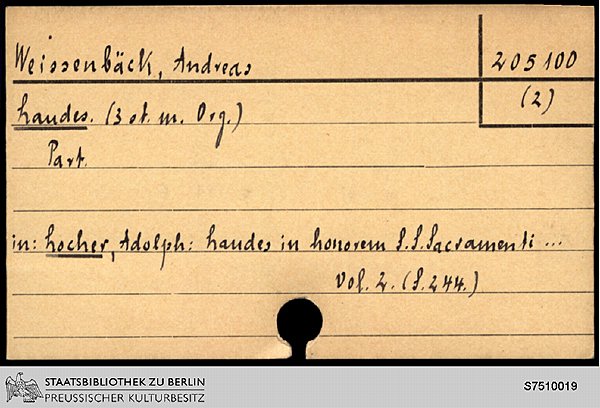 Weissenbäck, Andreas
205100
(2)
Laudes. (3 st. m. Org.)
Part.
in: Locher, Adolph: Laudes in honorem S.S.Sacramenti ...
Vol. 2. (S. 244.)
STAATSBIBLIOTHEK ZU BERLIN
PREUSSISCHER KULTURBESITZ
S7510019